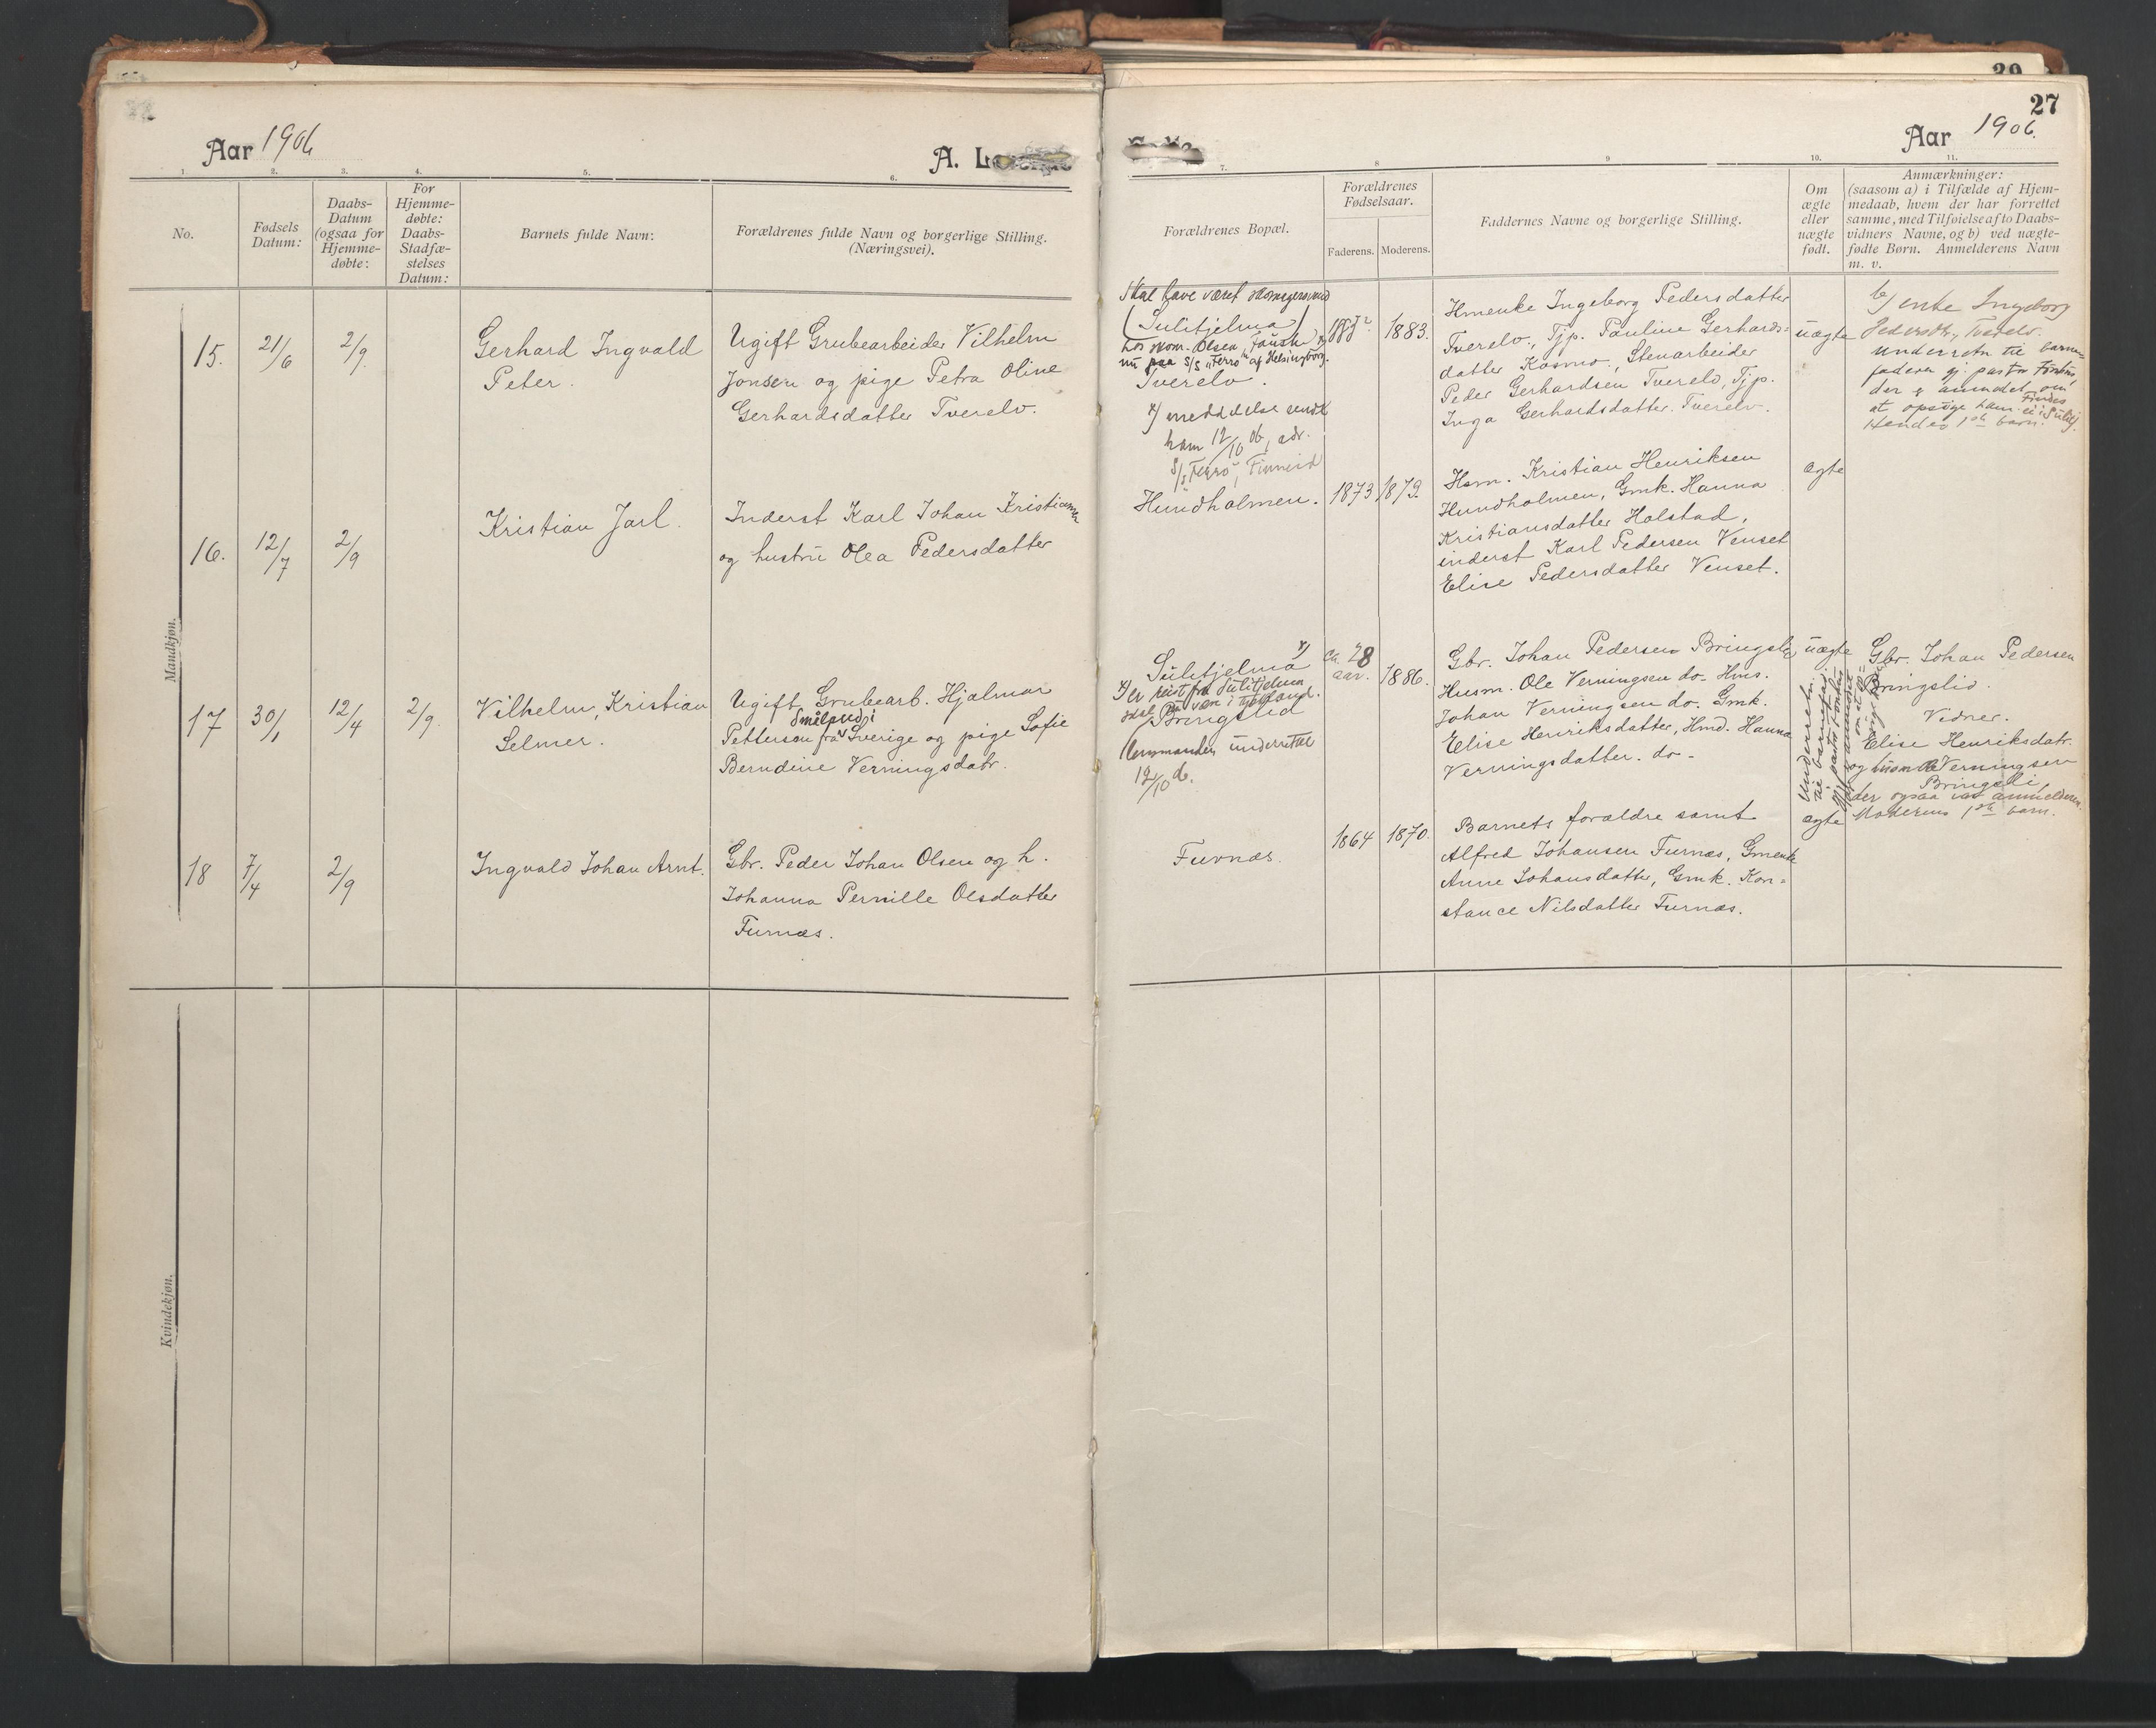 Aar 1906
A. L
1.
2.
3.
4.
5.
6.
No.
Fødsels
Datum:
Daabs-
Datum
(ogsaa for
Hjemme-
døbte:
For
Hjemme-
døbte:
Daabs-
Stadfæ-
stelses
Datum:
Barnets fulde Navn:
Forældrenes fulde Navn og borgerlige Stilling.
(Næringsvei).
Mandkjøn.
15.
21/6
2/9
Gerhard Ingvald
Peter.
Ugift Grubearbeider Vilhelm
Jonsen og pige Petra Oline
Gerhardsdatter Tverelv.
16.
12/7
2/9
Kristian Jarl.
Inderst Karl Johan Kristiansen
og hustru Olea Pedersdatter
17
30/1
12/4
2/9.
Vilhelm, Kristian
Selmer.
Ugift Grubearb. Hjalmar
Pettersen fra Sverige og pige Sofie
Berndine Verningsdatr.
18
7/4
2/9
Ingvald Johan Arnt.
Gbr. Peder Johan Olsen og h.
Johanna Pernille Olsdatter
Furnæs.
Kvindekjøn.
39
27
Aar 1906.
7.
8
9
10.
11.
Forældrenes Bopæl.
Forældrenes
Fødselsaar.
Faderens.
Moderens.
Faddernes Navne og borgerlige Stilling.
Om
ægte
eller
uægte
født.
Anmærkninger:
(saasom a) i Tilfælde af Hjem-
medaab, hvem der har forrettet
samme, med Tilføielse af to Daabs-
vidners Navne, og b) ved uægte-
fødte Børn. Anmelderens Navn
m. v.
Skal have været
(Sulitjelma)
hos skom. Olsen, Fauske
nu paa S/S "Ferro" af Helsingborg.
Tverelv.
x) meddelelse sendt
ham 12/10 06, adr.
S/S "Ferro", Finneid
1883.
Hmenke Ingeborg Pedersdatter
Tverelv, Tjp. Pauline Gerhards-
datter Kosmo, Stenarbeider
Peder Gerhardsen Tverelv, Tjp.
Inga Gerhardsdatter. Tverelv.
uægte
b) enke Ingeborg
Pedersdtr, Tverelv.
Underretn til barne-
faderen gj. pastor
der er anmodet om
at opsøge ham.
Hendes 1ste barn.
Hundholmen.
1873
1879.
Hsm. Kristian Henriksen
Hundholmen, Gmk. Hanna
Kristiansdatter Holstad,
inderst Karl Pedersen Venset
Elise Pedersdatter Venset.
ægte
Sulitjelma x)
x) er reist fra Sulitjelma
Bringslid
Lensmanden underrettet
12/10 6.
ca. 28
aar.
1886.
Gbr. Johan Pedersen Bringsli
Husm. Ole Verningsen do. Hms.
Johan Verningsen do. Gmk.
Elise Henriksdatter, Hmd. Hanna
Verningsdatter. do-
uægte
Underretn.
til barnefar
Gbr. Johan Pedersen
Bringslid
Vidner.
Elise Henriksdatr.
og husm Ole Verningsen
Bringsli,
der ogsaa var anmelderen.
Moderens 1ste barn.
Furnæs.
1864
1870.
Barnets forældre samt
Alfred Johansen Furnæs, Gmenke
Anne Johansdatter, Gmk. Kon-
stance Nilsdatter Furnæs.
ægte